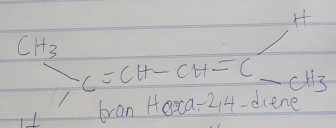 H
CH3
C=CH-CH=C
CH3
H
tran Hexa-2,4-diene